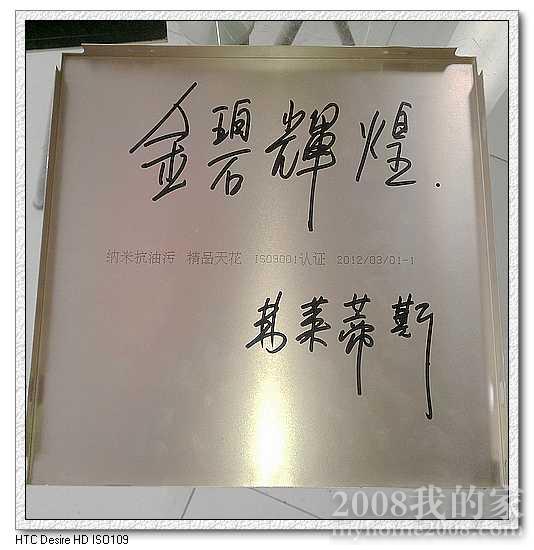 金碧輝煌.
纳米抗油污 精品天花 ISO9001认证 2012/03/01-1
弗莱蒂斯
2008我的家
myhome2008.com
HTC Desire HD ISO109